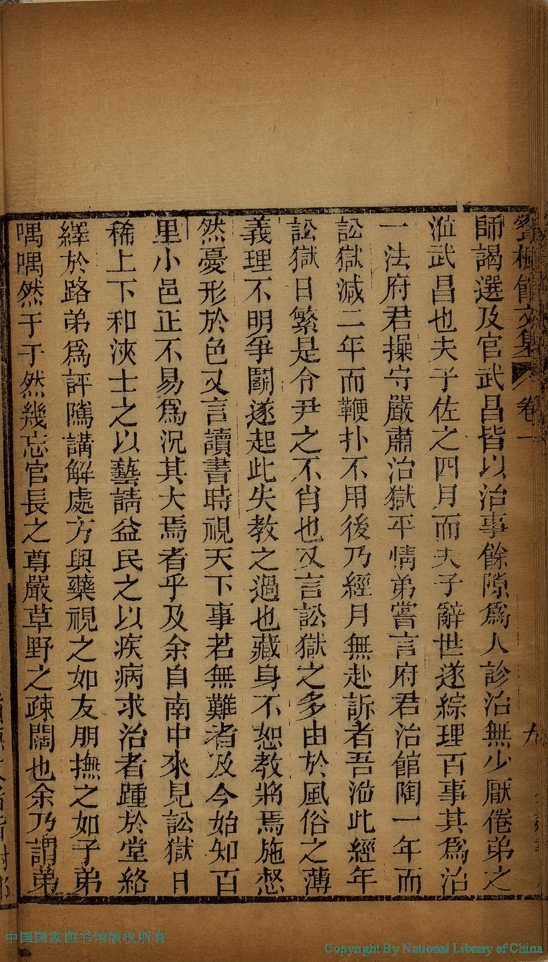 師謁選及官武昌皆以治事餘隙爲人診治無少厭倦弟之
涖武昌也夫子佐之四月而夫子辭世遂綜理百事其爲治
一法府君操守嚴肅治獄平情弟嘗言府君治館陶一年而
訟獄減二年而鞭扑不用後乃經月無赴訴者吾涖此經年
訟獄日繁是令尹之不肖也又言訟獄之多由於風俗之薄
義理不明爭鬭遂起此失教之過也藏身不恕教將焉施愁
然憂形於色又言讀書時視天下事若無難者及今始知百
里小邑正不易爲況其大焉者乎及余自南中來見訟獄日
稀上下和浹士之以藝請益民之以疾病求治者踵於堂絡
繹於路弟爲評隲講解處方與藥視之如友朋撫之如子弟
喁喁然于于然幾忘官長之尊嚴草野之疎闊也余乃謂弟
中国国家图书馆版权所有
Copyright By National Library of China